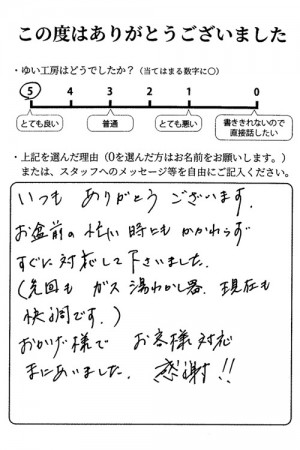 この度はありがとうございました
・ゆい工房はどうでしたか？（当てはまる数字に○）
5 4 3 2 1 0
とても良い 普通 とても悪い 書ききれないので直接話したい
・上記を選んだ理由（0を選んだ方はお名前をお願いします。）
または、スタッフへのメッセージ等を自由にご記入ください。
いつも ありがとう ございます.
お盆前の忙い時にもかかわらず
すぐに対応して下さいました.
(先回も ガス湯わかし器. 現在も
快調です.)
おかげ様で お客様対応
まにあいました. 感謝!!